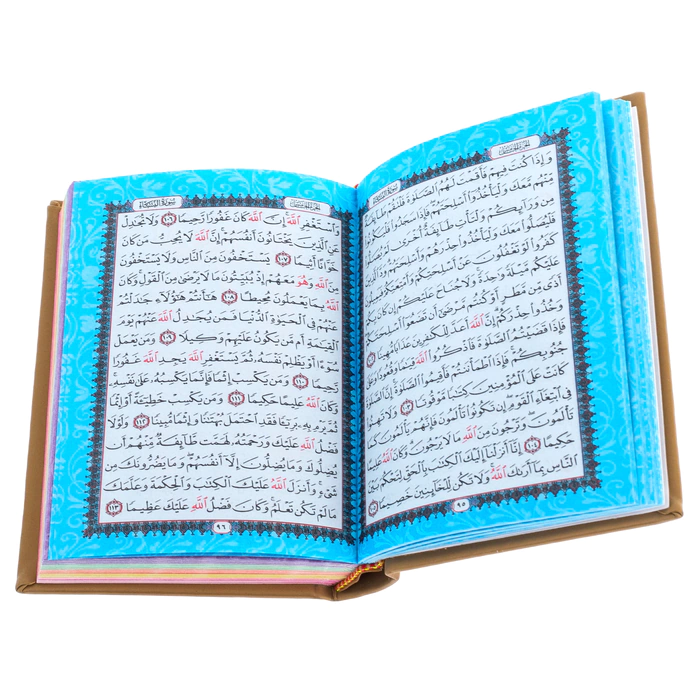 الجزء الخامس سورة النساء
وَإِذَا كُنتَ فِيهِمْ فَأَقَمْتَ لَهُمُ الصَّلَوٰةَ فَلْتَقُمْ طَآئِفَةٌ
مِّنْهُم مَّعَكَ وَلْيَأْخُذُوٓا۟ أَسْلِحَتَهُمْ فَإِذَا سَجَدُوا۟ فَلْيَكُونُوا۟
مِن وَرَآئِكُمْ وَلْتَأْتِ طَآئِفَةٌ أُخْرَىٰ لَمْ يُصَلُّوا۟
فَلْيُصَلُّوا۟ مَعَكَ وَلْيَأْخُذُوا۟ حِذْرَهُمْ وَأَسْلِحَتَهُمْ وَدَّ الَّذِينَ
كَفَرُوا۟ لَوْ تَغْفُلُونَ عَنْ أَسْلِحَتِكُمْ وَأَمْتِعَتِكُمْ فَيَمِيلُونَ
عَلَيْكُم مَّيْلَةً وَٰحِدَةً وَلَا جُنَاحَ عَلَيْكُمْ إِن كَانَ بِكُمْ
أَذًى مِّن مَّطَرٍ أَوْ كُنتُم مَّرْضَىٰٓ أَن تَضَعُوٓا۟ أَسْلِحَتَكُمْ
وَخُذُوا۟ حِذْرَكُمْ إِنَّ اللَّهَ أَعَدَّ لِلْكَٰفِرِينَ عَذَابًا مُّهِينًا ١٠٢
فَإِذَا قَضَيْتُمُ الصَّلَوٰةَ فَاذْكُرُوا۟ اللَّهَ قِيَٰمًا وَقُعُودًا وَعَلَىٰ
جُنُوبِكُمْ فَإِذَا اطْمَأْنَنتُمْ فَأَقِيمُوا۟ الصَّلَوٰةَ إِنَّ الصَّلَوٰةَ
كَانَتْ عَلَى الْمُؤْمِنِينَ كِتَٰبًا مَّوْقُوتًا ١٠٣ وَلَا تَهِنُوا۟
فِى ابْتِغَآءِ الْقَوْمِ إِن تَكُونُوا۟ تَأْلَمُونَ فَإِنَّهُمْ يَأْلَمُونَ كَمَا
تَأْلَمُونَ وَتَرْجُونَ مِنَ اللَّهِ مَا لَا يَرْجُونَ وَكَانَ اللَّهُ عَلِيمًا
حَكِيمًا ١٠٤ إِنَّآ أَنزَلْنَآ إِلَيْكَ الْكِتَٰبَ بِالْحَقِّ لِتَحْكُمَ بَيْنَ
النَّاسِ بِمَآ أَرَىٰكَ اللَّهُ وَلَا تَكُن لِّلْخَآئِنِينَ خَصِيمًا ١٠٥
٩٥
الجزء الخامس سورة النساء
وَاسْتَغْفِرِ اللَّهَ إِنَّ اللَّهَ كَانَ غَفُورًا رَّحِيمًا ١٠٦ وَلَا تُجَٰدِلْ
عَنِ الَّذِينَ يَخْتَانُونَ أَنفُسَهُمْ إِنَّ اللَّهَ لَا يُحِبُّ مَن كَانَ
خَوَّانًا أَثِيمًا ١٠٧ يَسْتَخْفُونَ مِنَ النَّاسِ وَلَا يَسْتَخْفُونَ
مِنَ اللَّهِ وَهُوَ مَعَهُمْ إِذْ يُبَيِّتُونَ مَا لَا يَرْضَىٰ مِنَ الْقَوْلِ وَكَانَ
اللَّهُ بِمَا يَعْمَلُونَ مُحِيطًا ١٠٨ هَٰٓأَنتُمْ هَٰٓؤُلَآءِ جَٰدَلْتُمْ
عَنْهُمْ فِى الْحَيَوٰةِ الدُّنْيَا فَمَن يُجَٰدِلُ اللَّهَ عَنْهُمْ يَوْمَ
الْقِيَٰمَةِ أَم مَّن يَكُونُ عَلَيْهِمْ وَكِيلًا ١٠٩ وَمَن يَعْمَلْ
سُوٓءًا أَوْ يَظْلِمْ نَفْسَهُۥ ثُمَّ يَسْتَغْفِرِ اللَّهَ يَجِدِ اللَّهَ غَفُورًا
رَّحِيمًا ١١٠ وَمَن يَكْسِبْ إِثْمًا فَإِنَّمَا يَكْسِبُهُۥ عَلَىٰ نَفْسِهِۦ
وَكَانَ اللَّهُ عَلِيمًا حَكِيمًا ١١١ وَمَن يَكْسِبْ خَطِيٓئَةً أَوْ إِثْمًا
ثُمَّ يَرْمِ بِهِۦ بَرِيٓئًا فَقَدِ احْتَمَلَ بُهْتَٰنًا وَإِثْمًا مُّبِينًا ١١٢ وَلَوْلَا
فَضْلُ اللَّهِ عَلَيْكَ وَرَحْمَتُهُۥ لَهَمَّت طَّآئِفَةٌ مِّنْهُمْ أَن
يُضِلُّوكَ وَمَا يُضِلُّونَ إِلَّآ أَنفُسَهُمْ وَمَا يَضُرُّونَكَ مِن
شَىْءٍ وَأَنزَلَ اللَّهُ عَلَيْكَ الْكِتَٰبَ وَالْحِكْمَةَ وَعَلَّمَكَ
مَا لَمْ تَكُن تَعْلَمُ وَكَانَ فَضْلُ اللَّهِ عَلَيْكَ عَظِيمًا ١١٣
٩٦